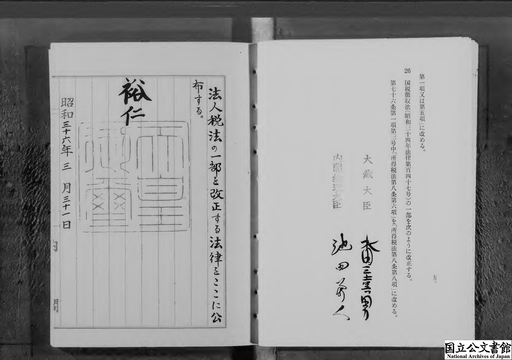 第一項又は第五項」に改める。
26 国税徴収法(昭和三十四年法律第百四十七号)の一部を次のように改正する。
第七十六条第一項第三号中「所得税法第八条第六項」を「所得税法第八条第八項」に改める。
大蔵大臣
水田三喜男
内閣総理大臣
池田勇人
法人税法の一部を改正する法律をここに公
布する。
裕仁
天皇
御璽
昭和三十六年三月三十一日
国立公文書館
National Archives of Japan